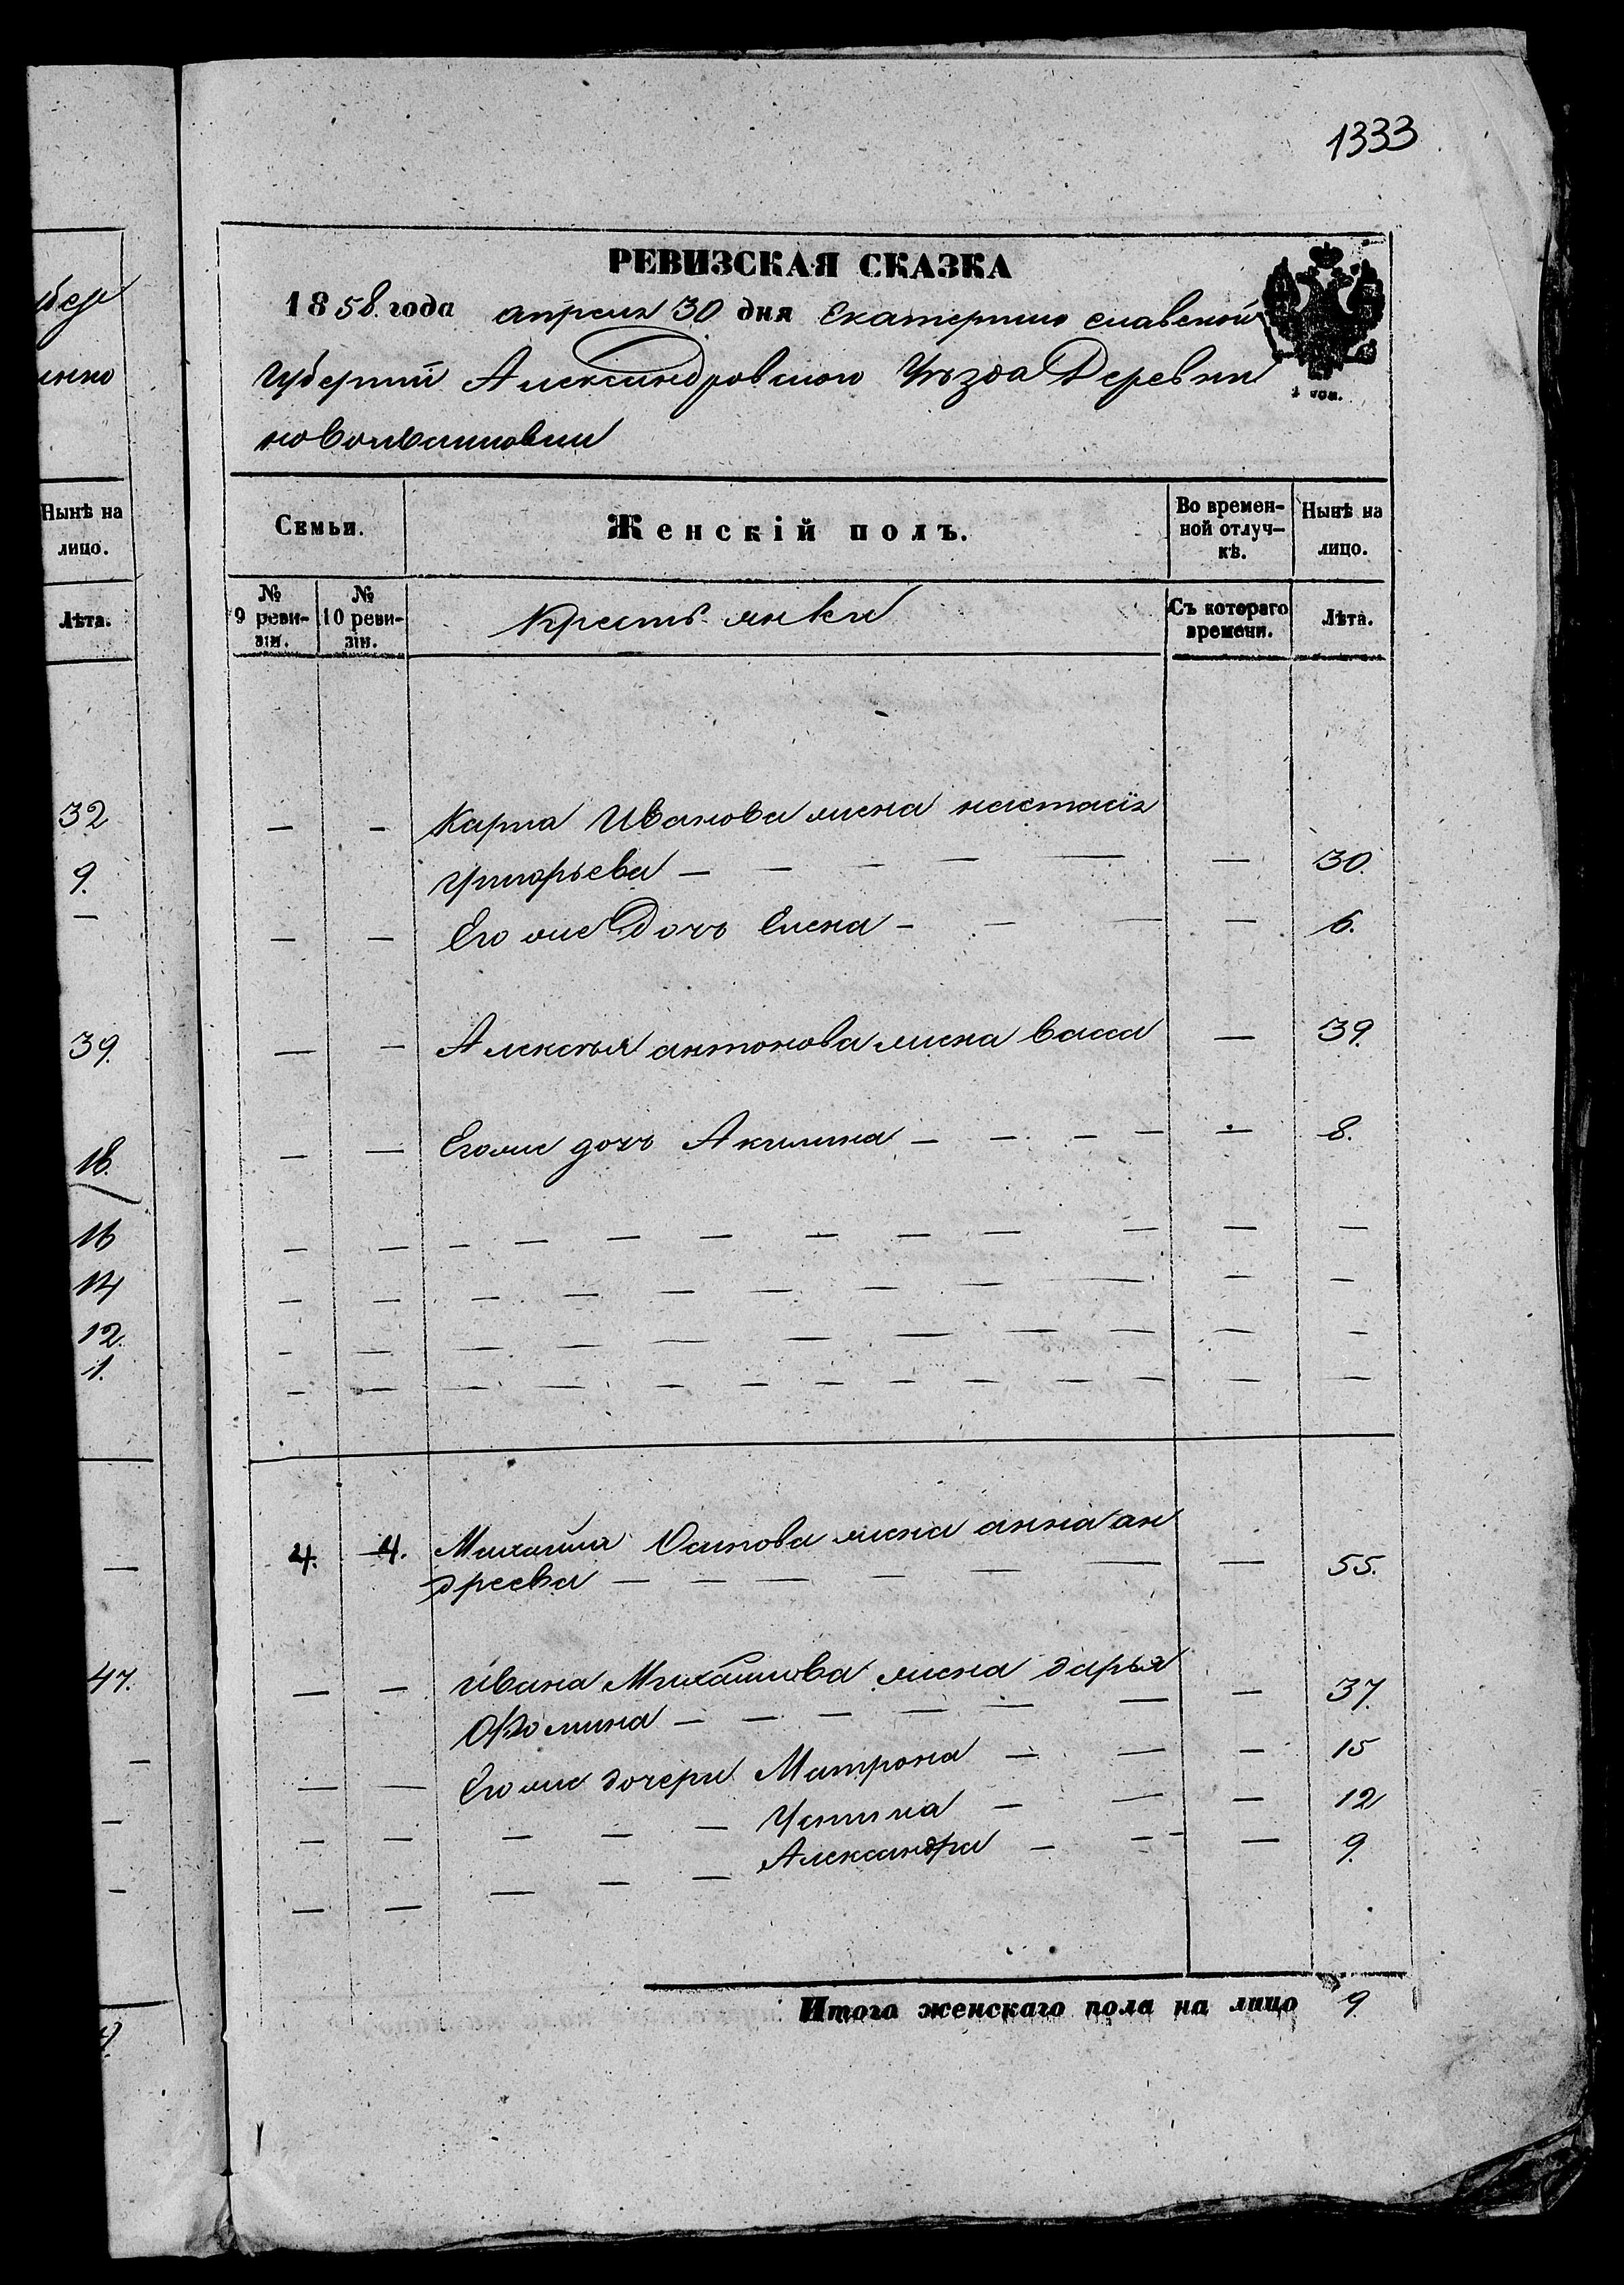 1333
РЕВИЗСКАЯ СКАЗКА
1858. года апреля 30 дня Екатерино славской
Губернии Александровского Уезда Деревни
новоивановки
1 сон.
бер
Нынѣ на
лицо.
Лѣта.
32
9.
39.
18.
16
14
12.
1.
47.
Семьи.
Женскій полъ.
Во времен-
ной отлуч-
кѣ.
Нынѣ на
лицо.
№
9 реви-
зіи.
№
10 реви-
зіи.
Крестьянки
Съ котораго
времени.
Лѣта.
— — Карпа Иванова жена настасія
Григорьева — — — — — — 30.
— — Его же Дочь Елена — — — — 6.
— — Алексѣя антонова жена васса — 39.
— — Егоже дочь Акилина — — — — — 8.
— — — — — — — — — — — — —
— — — — — — — — — — — —
— — — — — — — — — — — —
— — — — — — — — — — — — — —
4. 4. Михаила Осипова жена анна ан
дреева — — — — — — — — 55.
— — Ивана Михайлова жена дарья
Фомина — — — — — — — 37.
— — Его же дочери Матрона — — — 15
— — — — — Устина — — — 12
— — — — — Александра — — — 9.
Итого женскаго пола на лицо 9.